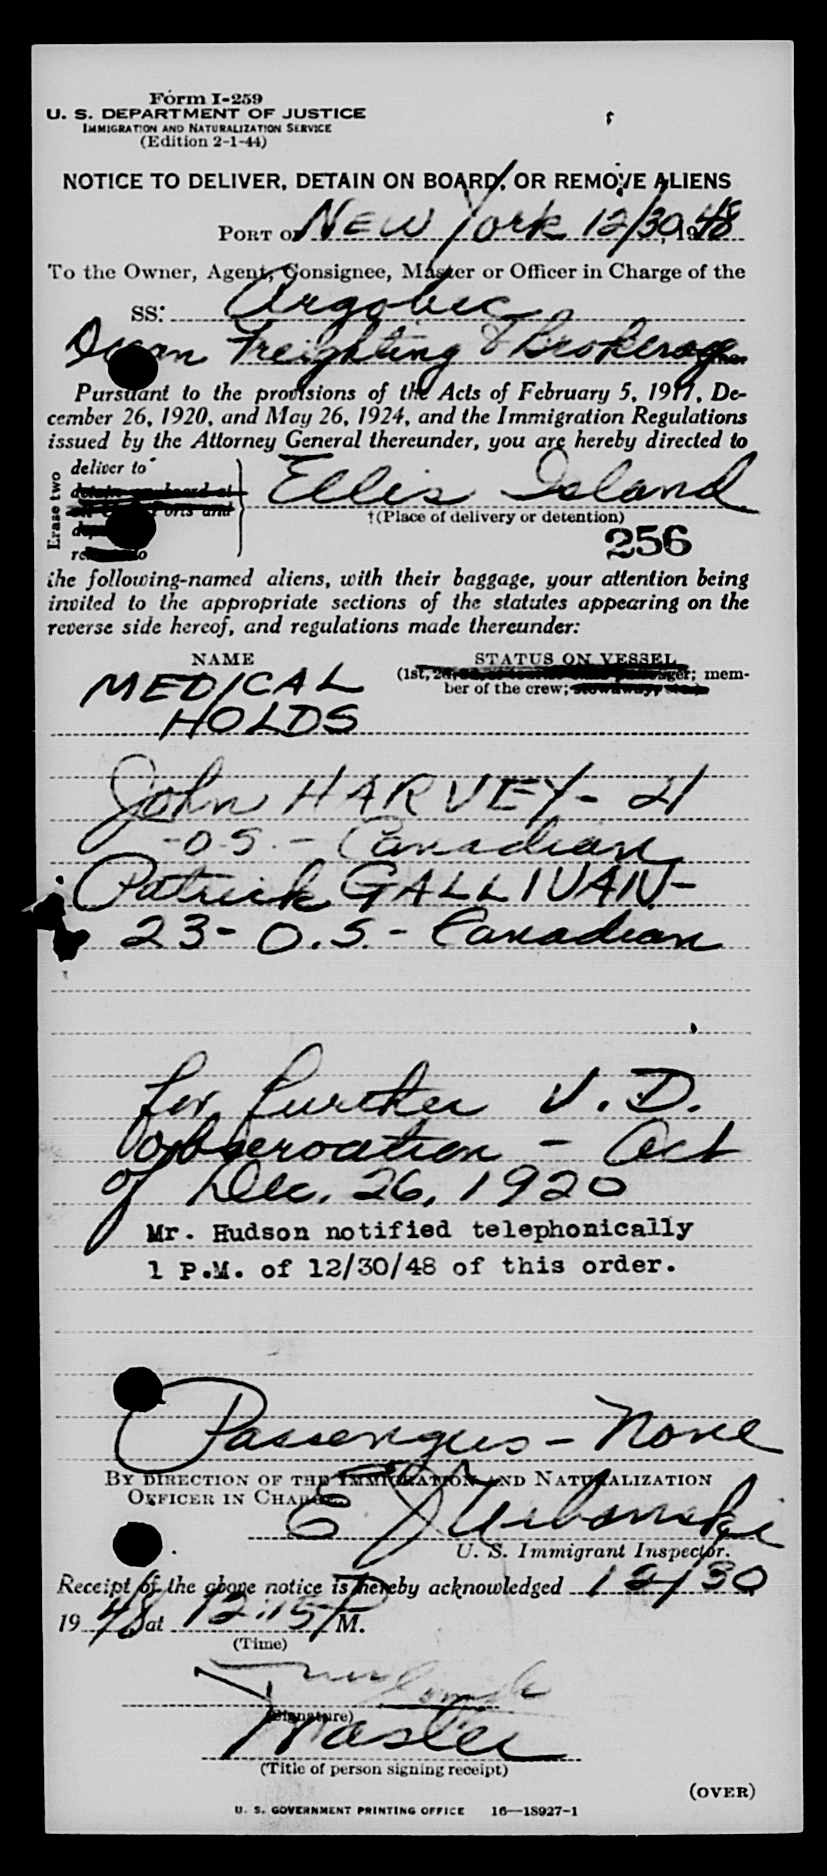 Form I-259
U. S. DEPARTMENT OF JUSTICE
IMMIGRATION AND NATURALIZATION SERVICE
(Edition 2-1-44)
NOTICE TO DELIVER, DETAIN ON BOARD, OR REMOVE ALIENS
PORT OF NEW York 12/30, 1948
To the Owner, Agent, Consignee, Master or Officer in Charge of the
SS: Argobec
Freighting & Brokerage
Pursuant to the provisions of the Acts of February 5, 1917, De-
cember 26, 1920, and May 26, 1924, and the Immigration Regulations
issued by the Attorney General thereunder, you are hereby directed to
Erase two
deliver to
detain on board at
Ports and
Ellis Island
†(Place of delivery or detention)
256
the following-named aliens, with their baggage, your attention being
invited to the appropriate sections of the statutes appearing on the
reverse side hereof, and regulations made thereunder:
NAME STATUS ON VESSEL
(1st, 2d, passenger; mem-
ber of the crew; stowaway, etc.)
MEDICAL
HOLDS
John HARVEY - 21
- O.S. - Canadian
Patrick GALLIVAN -
23 - O.S. - Canadian
for further V.D.
observation - Act
of Dec. 26, 1920
Mr. Hudson notified telephonically
1 P.M. of 12/30/48 of this order.
Passengers - None
BY DIRECTION OF THE IMMIGRATION AND NATURALIZATION
OFFICER IN CHARGE.
E J Urbanski
U. S. Immigrant Inspector.
Receipt of the above notice is hereby acknowledged 12/30
1948, at 12:15 P M.
(Time)
(Signature)
Master
(Title of person signing receipt)
(OVER)
U. S. GOVERNMENT PRINTING OFFICE 16—18927-1